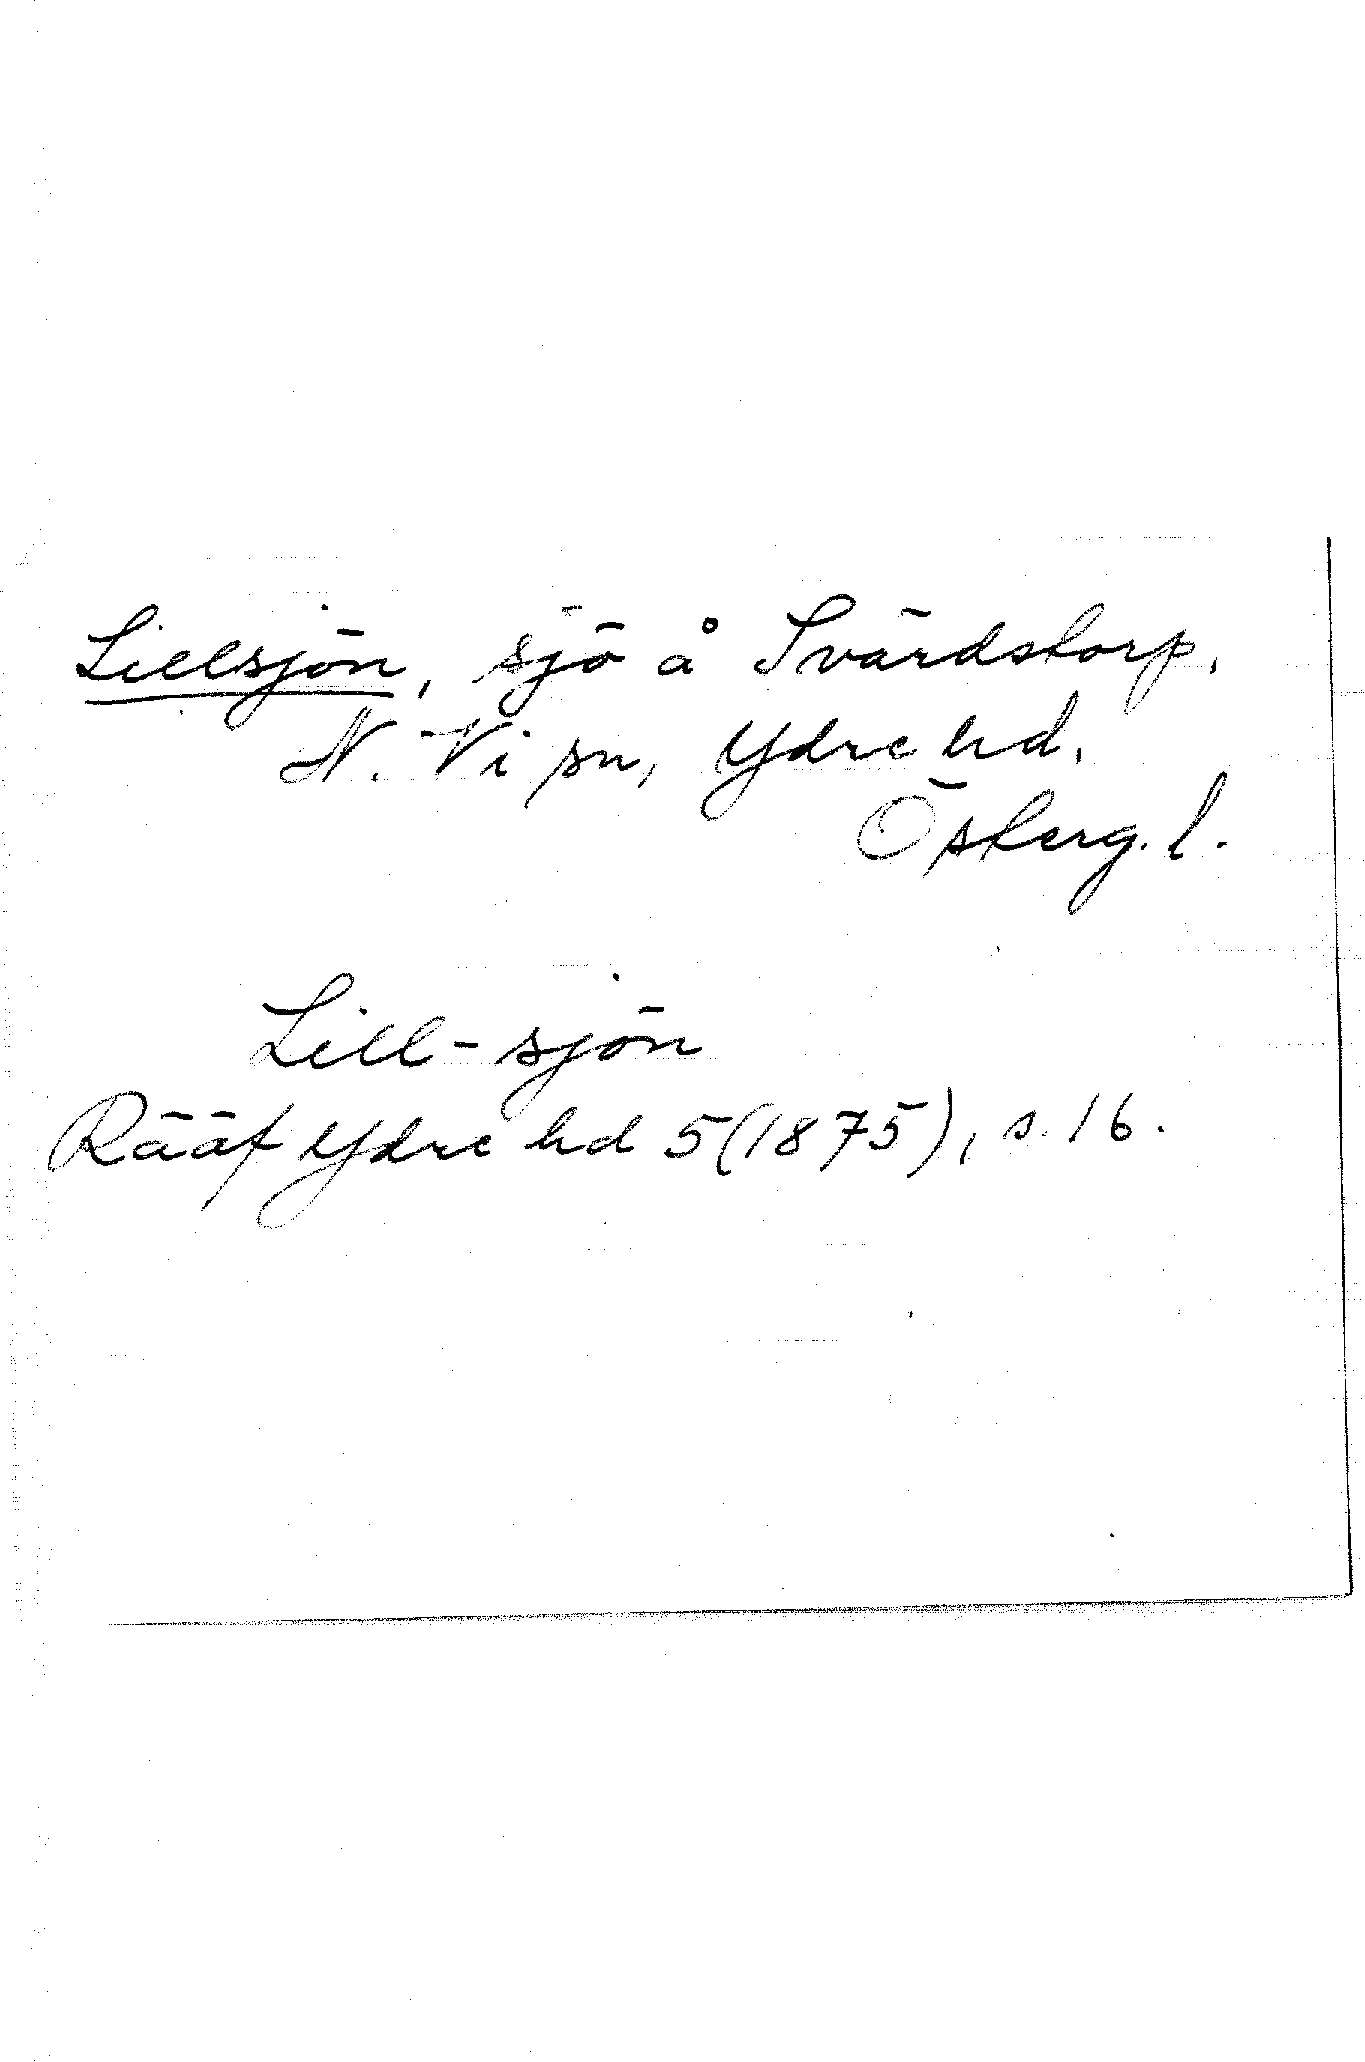 Lillsjön, sjö å Svärdstorp,
N. Vi sn, Ydre hd,
Österg. l.
Lill-sjön
Rääf Ydre hd 5(1875), s. 16.